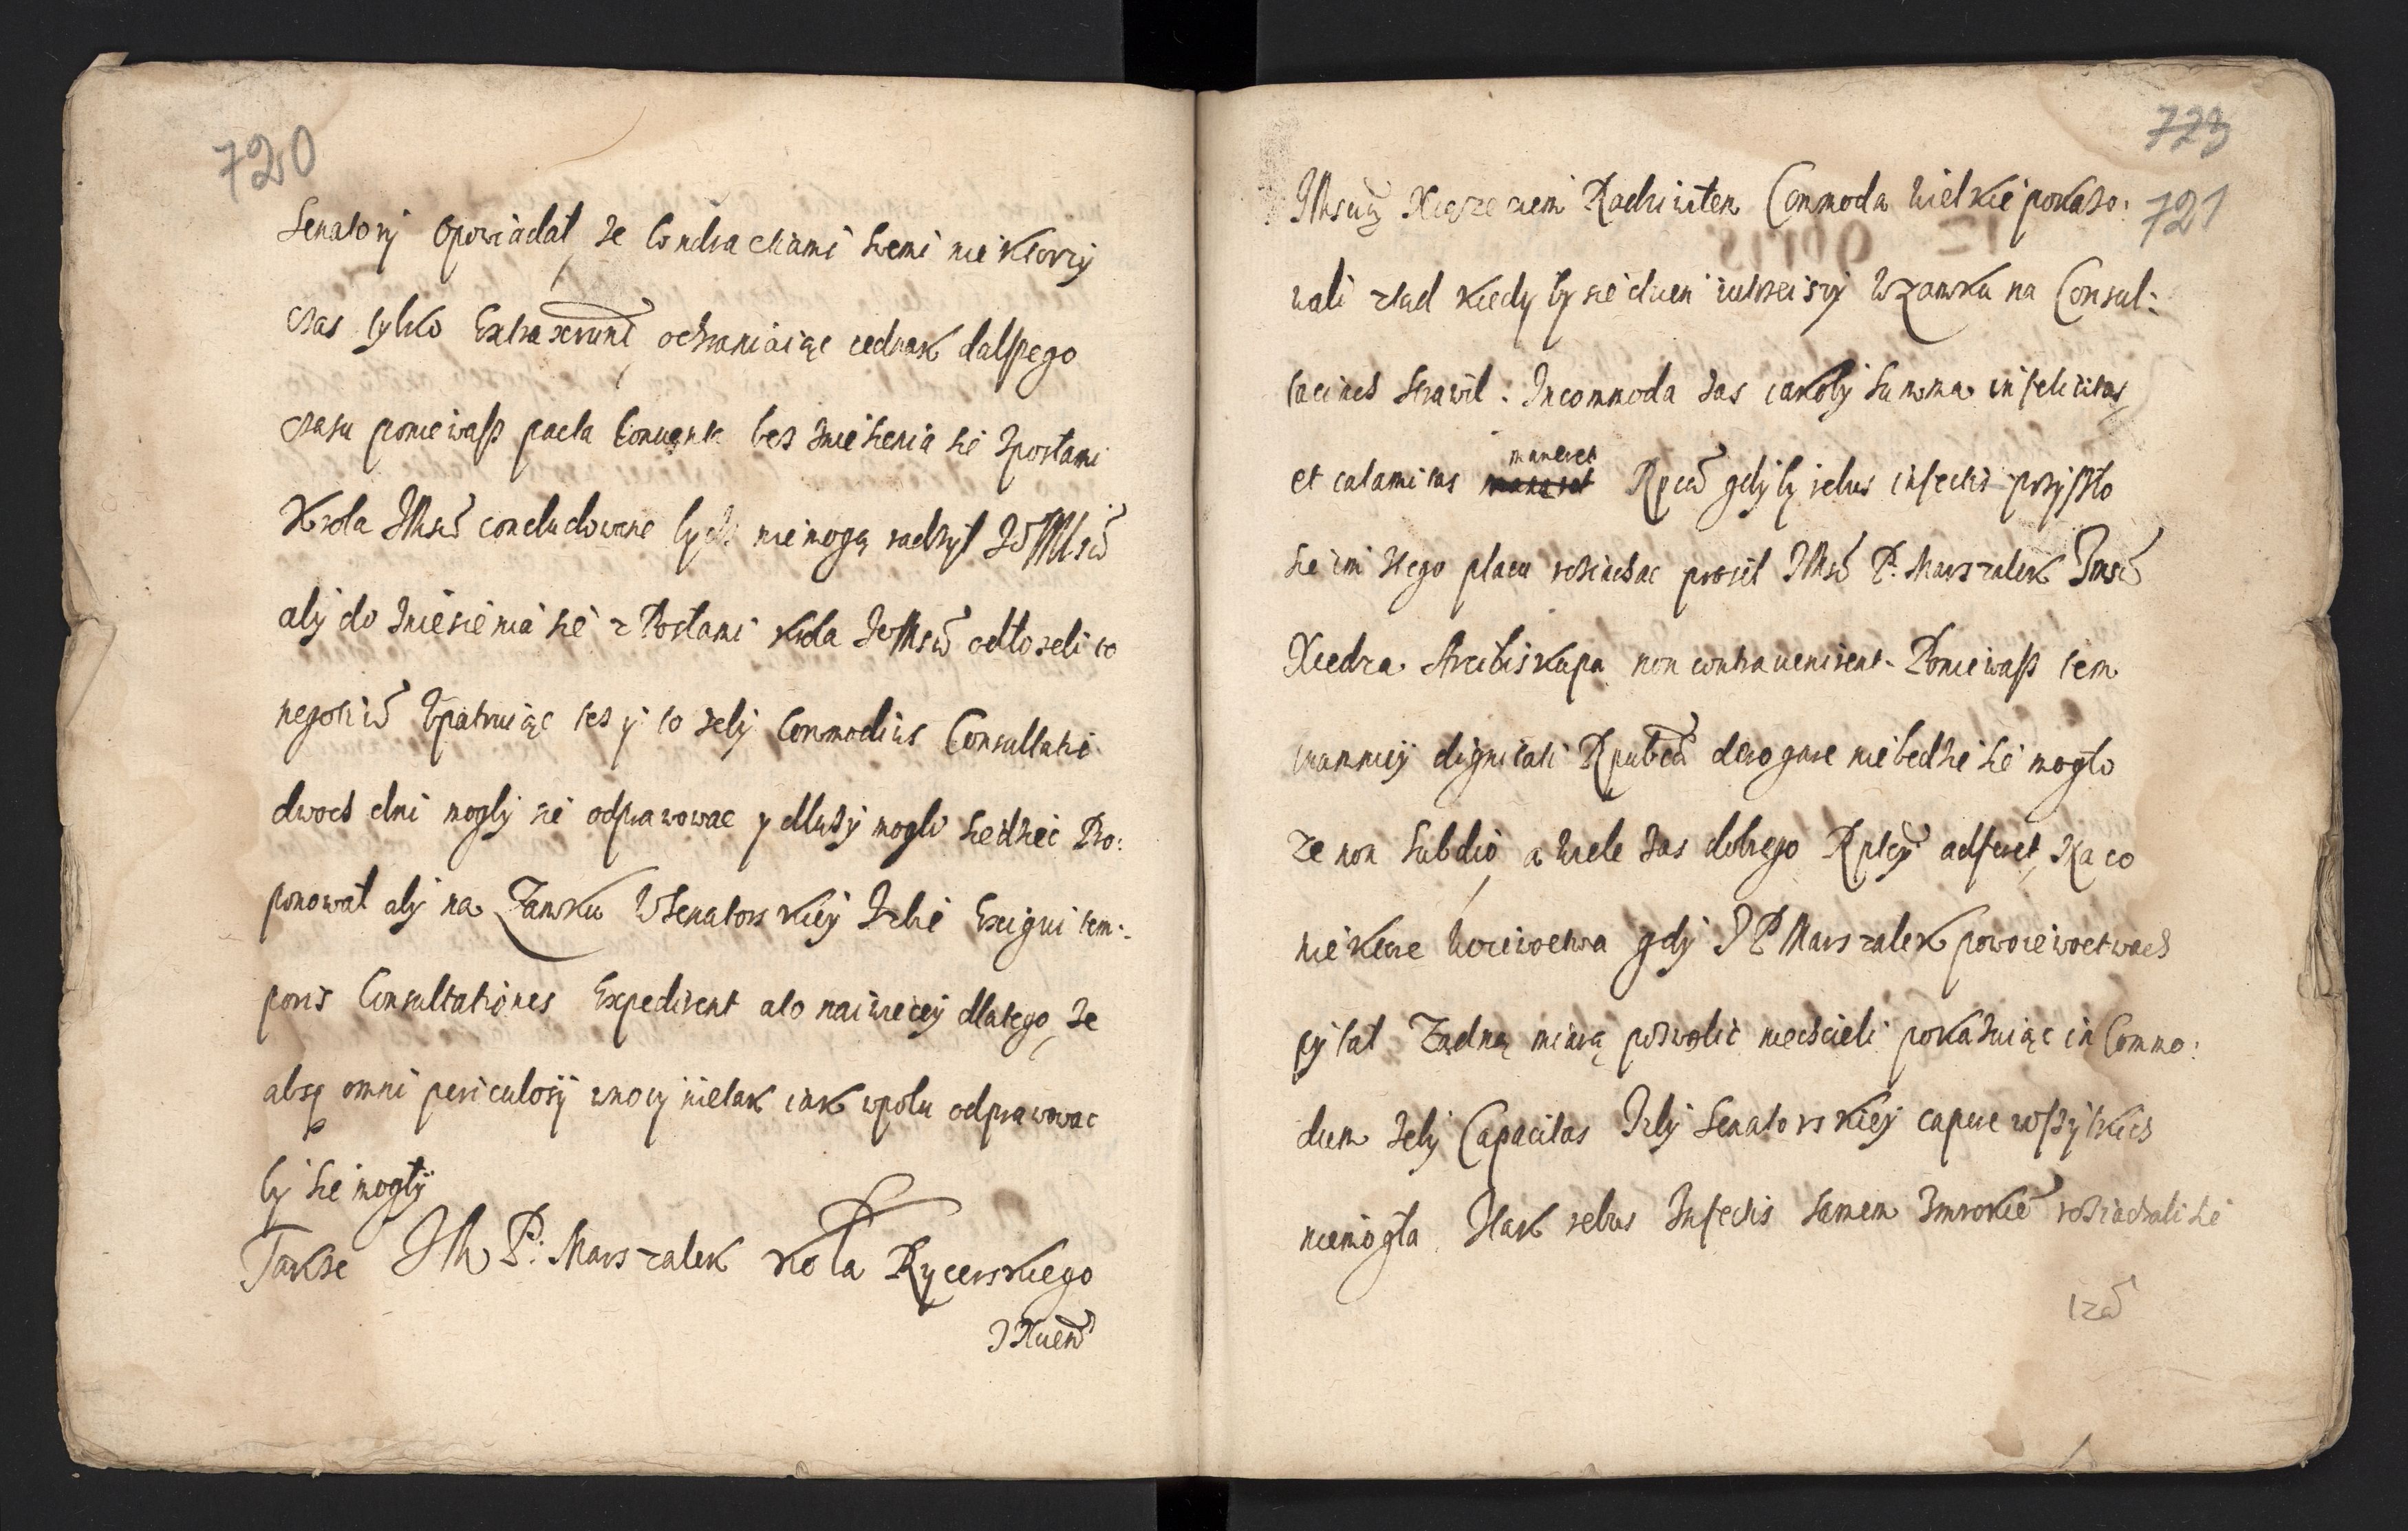 720
Senatorÿ opowiadał, ze Contradictiami swemi niektorzÿ
czas tylko Extraxerunt, ochraniaiąc iednak dalszego
czasu poniewasz pacta Conuenta bez zniesienia sie zposłami
Krola JMsci concludowane bydz niemogą radził JoMsci
abÿ do zniesienia sie z Posłami Krola JeoMsci odłozeli to
negotiu upatruiąc tez ÿ to zebÿ Commodius Consultatie
dwoch dni moglÿ sie odprawowac y dłuzÿ mogli siedziec Pro:
ponował abÿ na Zamku w Senatorskieÿ Izbie Exigui tem:
poris Consultationes Expedirent a to naiwiecey dlatego, ze
absq omni periculosÿ wnocy nietak iak wpolu odprawowac
bÿ sie mogłÿ
Takze JM P. Marszałek Koła Rycerskiego
JXciem
723
721
JMscią Xiązeciem Radziwiłem Commoda wielkie pokazo:
wali ztąd kiedy by sie dzien iutrzeiszÿ w Zamku na Consul:
taciach strawił. Incommoda zas iakobÿ summa infelicitas
et calamitas maneret Rpcæ gdyby rebus infectis przÿszło
sie im stego placu roziachac prosił JMsci P. Marszałek Jmsci
Xiedza Arcibiskupa non contrauenirent. Poniewasz tem
inanniej dignitati Rpublicæ derogare niebedzie sie mogło
ze non subdio, a wiele zas dobrego Rpltey adferet, Na co
niektore woiewoctwa gdÿ J P Marszałek powoiewoctwach
pÿtał Zadną miarą pozwolic niechcieli pokazuiąc inCommo:
dum zebÿ Capacitas Izbÿ Senatorskieÿ capere wszÿtkich
niemogła. Itak rebus Infectis samem Zmrokiem roziachali sie